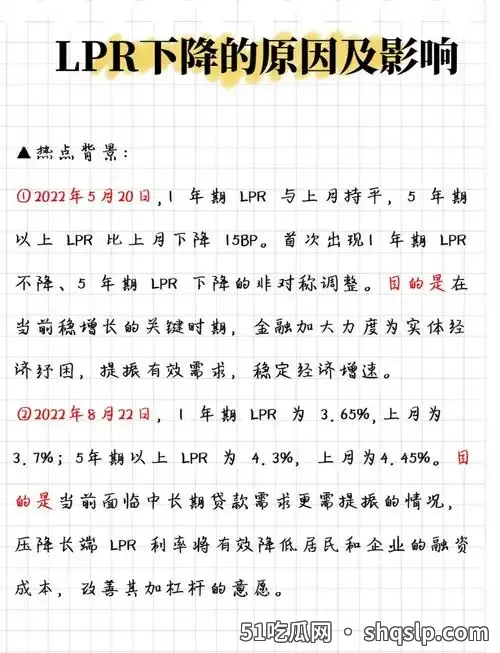 LPR下降的原因及影响
▲热点背景：
①2022年5月20日，1 年期 LPR 与上月持平，5 年期
以上 LPR 比上月下降 15BP。首次出现1 年期 LPR
不降、5 年期 LPR 下降的非对称调整。目的是在
当前稳增长的关键时期，金融加大力度为实体经
济纾困，提振有效需求，稳定经济增速。
②2022年8月22日，1 年期 LPR 为 3.65%,上月为
3.7%；5年期以上 LPR 为 4.3%，上月为4.45%。目
的是当前面临中长期贷款需求更需提振的情况，
压降长端 LPR 利率将有效降低居民和企业的融资
成本，改善其加杠杆的意愿。
51吃瓜网 · shqslp.com